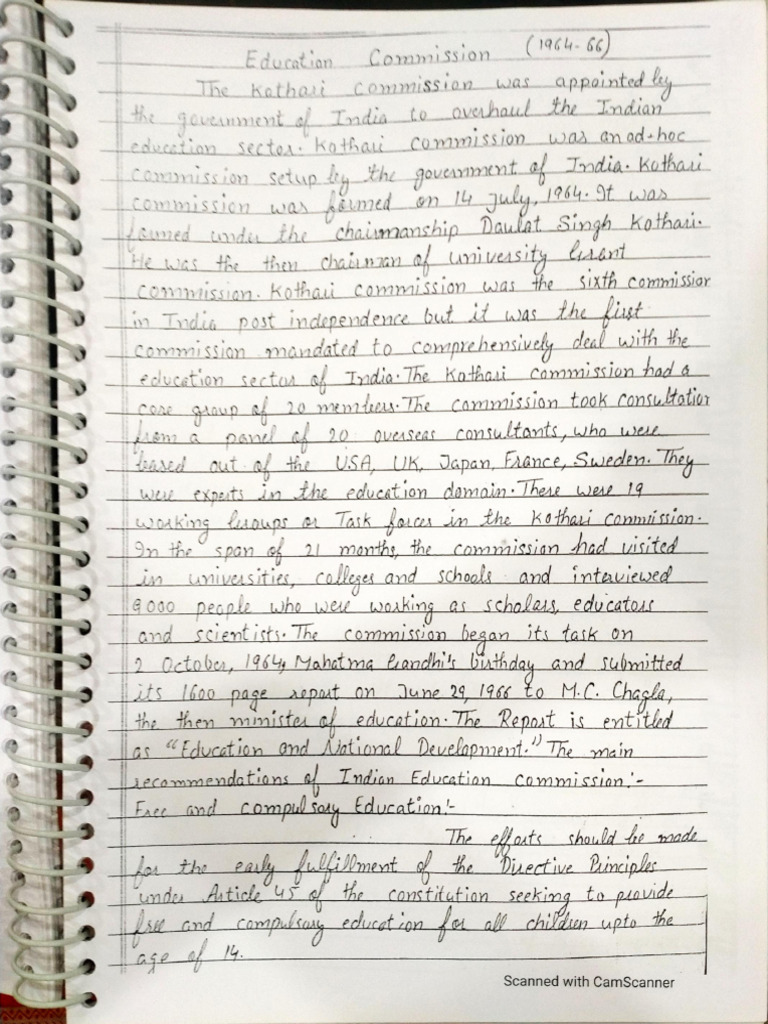 Education Commission (1964-66)
The Kothari Commission was appointed by
the government of India to overhaul the Indian
education sector. Kothari commission was an ad-hoc
commission setup by the government of India. Kothari
commission was formed on 14 July, 1964. It was
formed under the chairmanship Daulat Singh Kothari.
He was the then chairman of university Grant
commission. Kothari commission was the sixth commission
in India post independence but it was the first
commission mandated to comprehensively deal with the
education sector of India. The Kothari commission had a
core group of 20 members. The commission took consultation
from a panel of 20 overseas consultants, who were
based out of the USA, UK, Japan, France, Sweden. They
were experts in the education domain. There were 19
working Groups or Task forces in the Kothari commission.
In the span of 21 months, the commission had visited
in universities, colleges and schools and interviewed
9000 people who were working as scholars, educators
and scientists. The commission began its task on
2 October, 1964, Mahatma Gandhi's birthday and submitted
its 1600 page report on June 29, 1966 to M.C. Chagla,
the then minister of education. The Report is entitled
as "Education and National Development." The main
recommendations of Indian Education commission:-
Free and compulsory Education:-
The efforts should be made
for the early fulfillment of the Directive Principles
under Article 45 of the constitution seeking to provide
free and compulsory education for all children upto the
age of 14.
Scanned with CamScanner